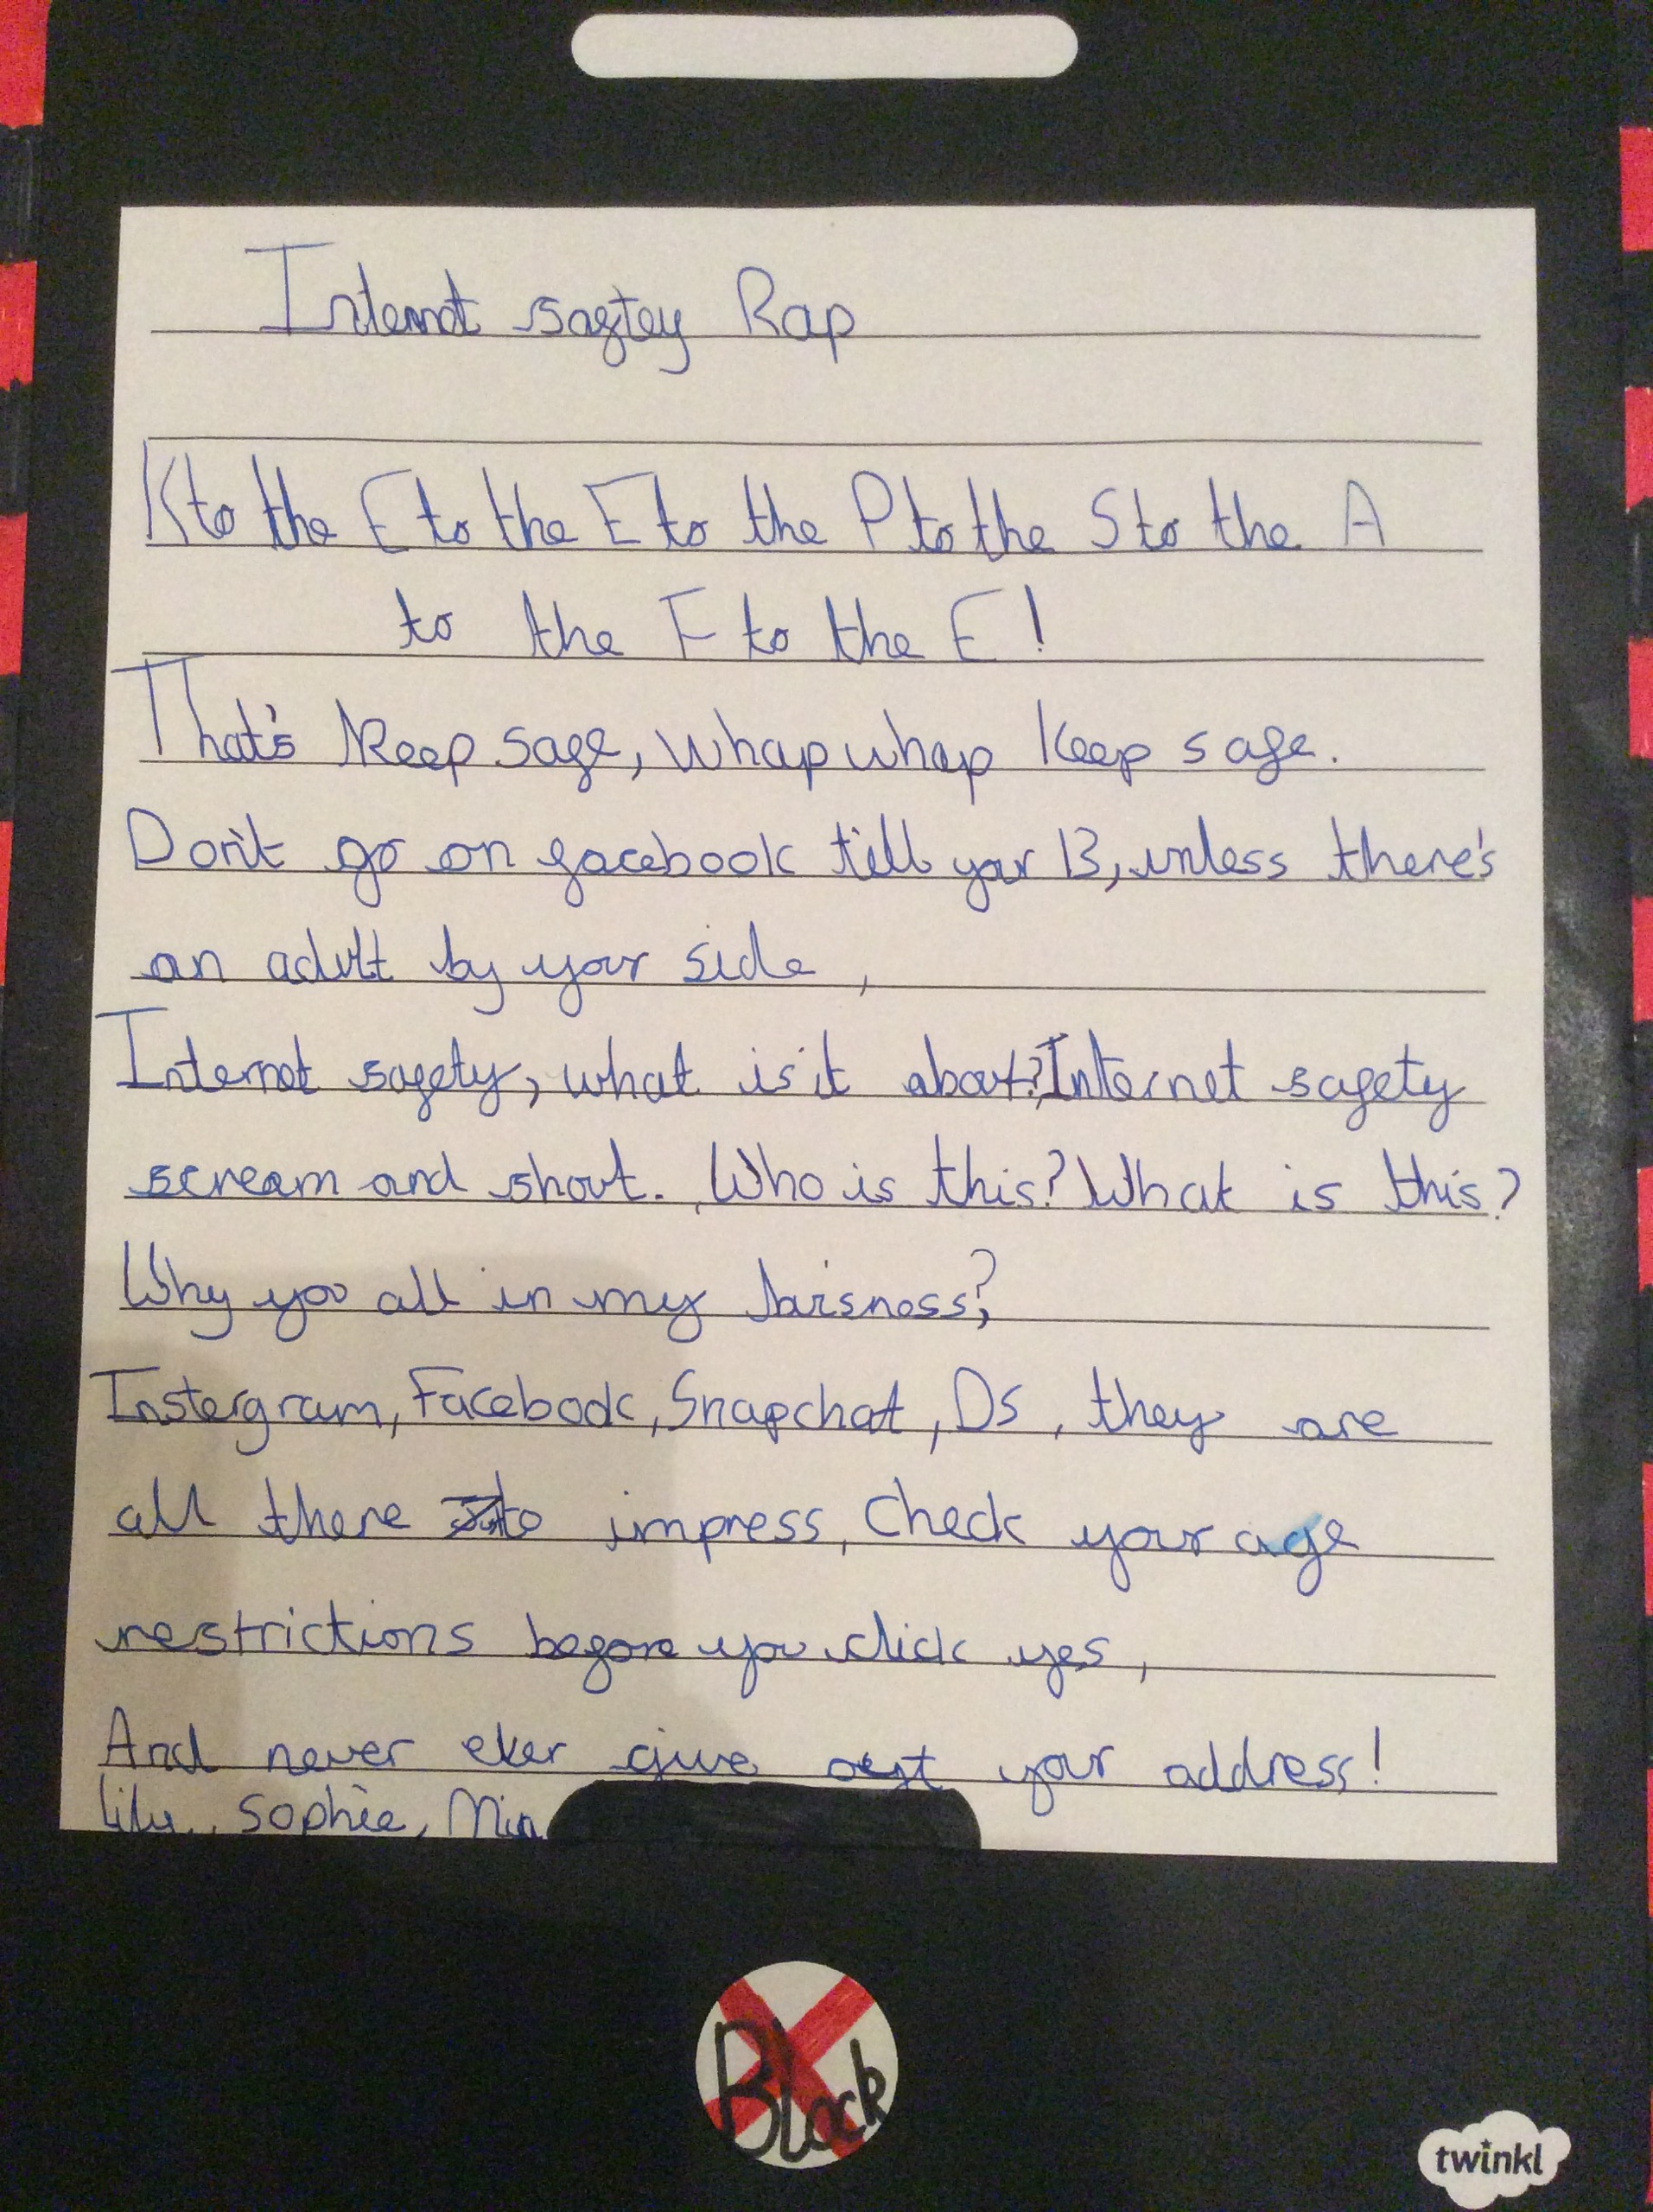 Internot saftey Rap
K to the E to the E to the P to the S to the A
to the F to the E!
That's Keep safe, whap whap Keep safe.
Don't go on facebook till your 13, unless there's
an adult by your side,
Internet safety, what is it about? Internet safety
scream and shout. Who is this? What is this?
Why you all in my buisness?
Instergram, Facebook, Snapchat, DS, they are
all there to impress, Check your age
restrictions before you click yes,
And never ever give out your address!
Lily, Sophie, Mia
Block
twinkl